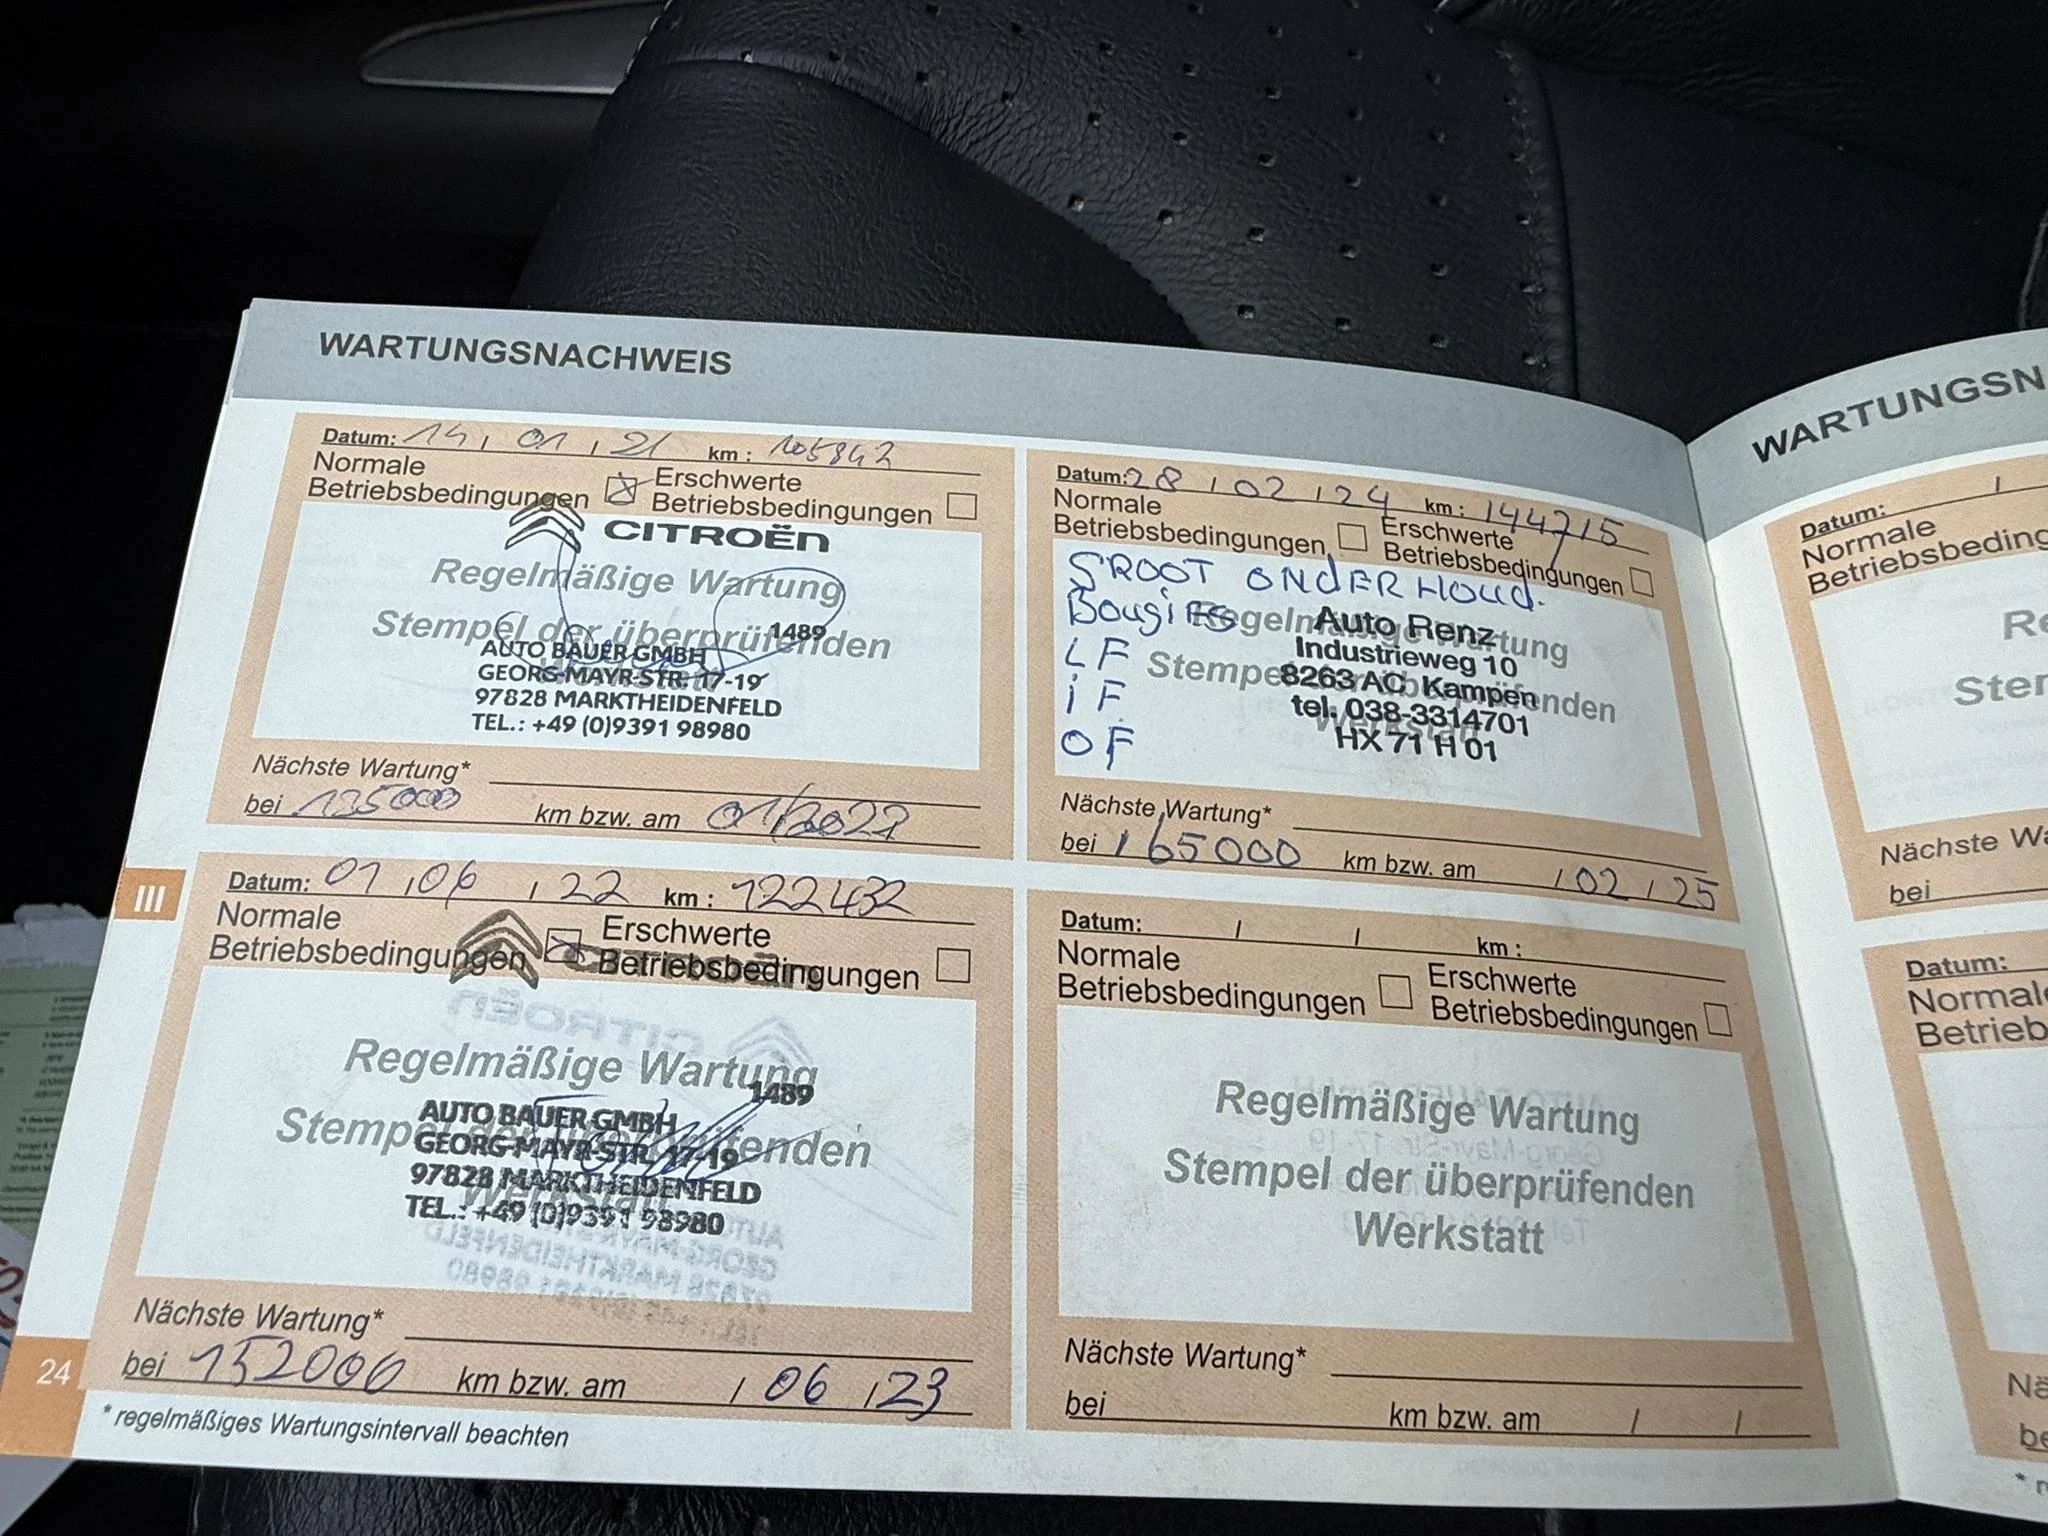 WARTUNGSNACHWEIS
Datum: 14, 01, 21 km: 105842
Normale Betriebsbedingungen
Erschwerte Betriebsbedingungen
CITROËN
Regelmäßige Wartung
Stempel der überprüfenden
1489
AUTO BAUER GMBH
GEORG-MAYR-STR. 17-19
97828 MARKTHEIDENFELD
TEL.: +49 (0)9391 98980
Nächste Wartung*
bei 135000 km bzw. am 01/2022
III
Datum: 01, 06, 22 km: 122432
Normale Betriebsbedingungen
Erschwerte Betriebsbedingungen
CITROËN
Regelmäßige Wartung
Stempel der überprüfenden
Werkstatt
1489
AUTO BAUER GMBH
GEORG-MAYR-STR. 17-19
97828 MARKTHEIDENFELD
TEL.: +49 (0)9391 98980
Nächste Wartung*
bei 152000 km bzw. am / 06 / 23
24
* regelmäßiges Wartungsintervall beachten
Datum: 28 / 02 / 24 km: 144715
Normale Betriebsbedingungen
Erschwerte Betriebsbedingungen
GROOT ONDERHOUD.
Bougies
LF
iF
OF
Regelmäßige Wartung
Stempel der überprüfenden
Werkstatt
Auto Renz
Industrieweg 10
8263 AC Kampen
tel. 038-3314701
HX 71 H 01
Nächste Wartung*
bei 165000 km bzw. am / 02 / 25
Datum: / / km:
Normale Betriebsbedingungen
Erschwerte Betriebsbedingungen
Regelmäßige Wartung
Stempel der überprüfenden
Werkstatt
Nächste Wartung*
bei km bzw. am / /
WARTUNGSN
Datum: /
Normale
Betriebsbeding
Re
Ster
Nächste Wa
bei
Datum:
Normal
Betrieb
Nä
be